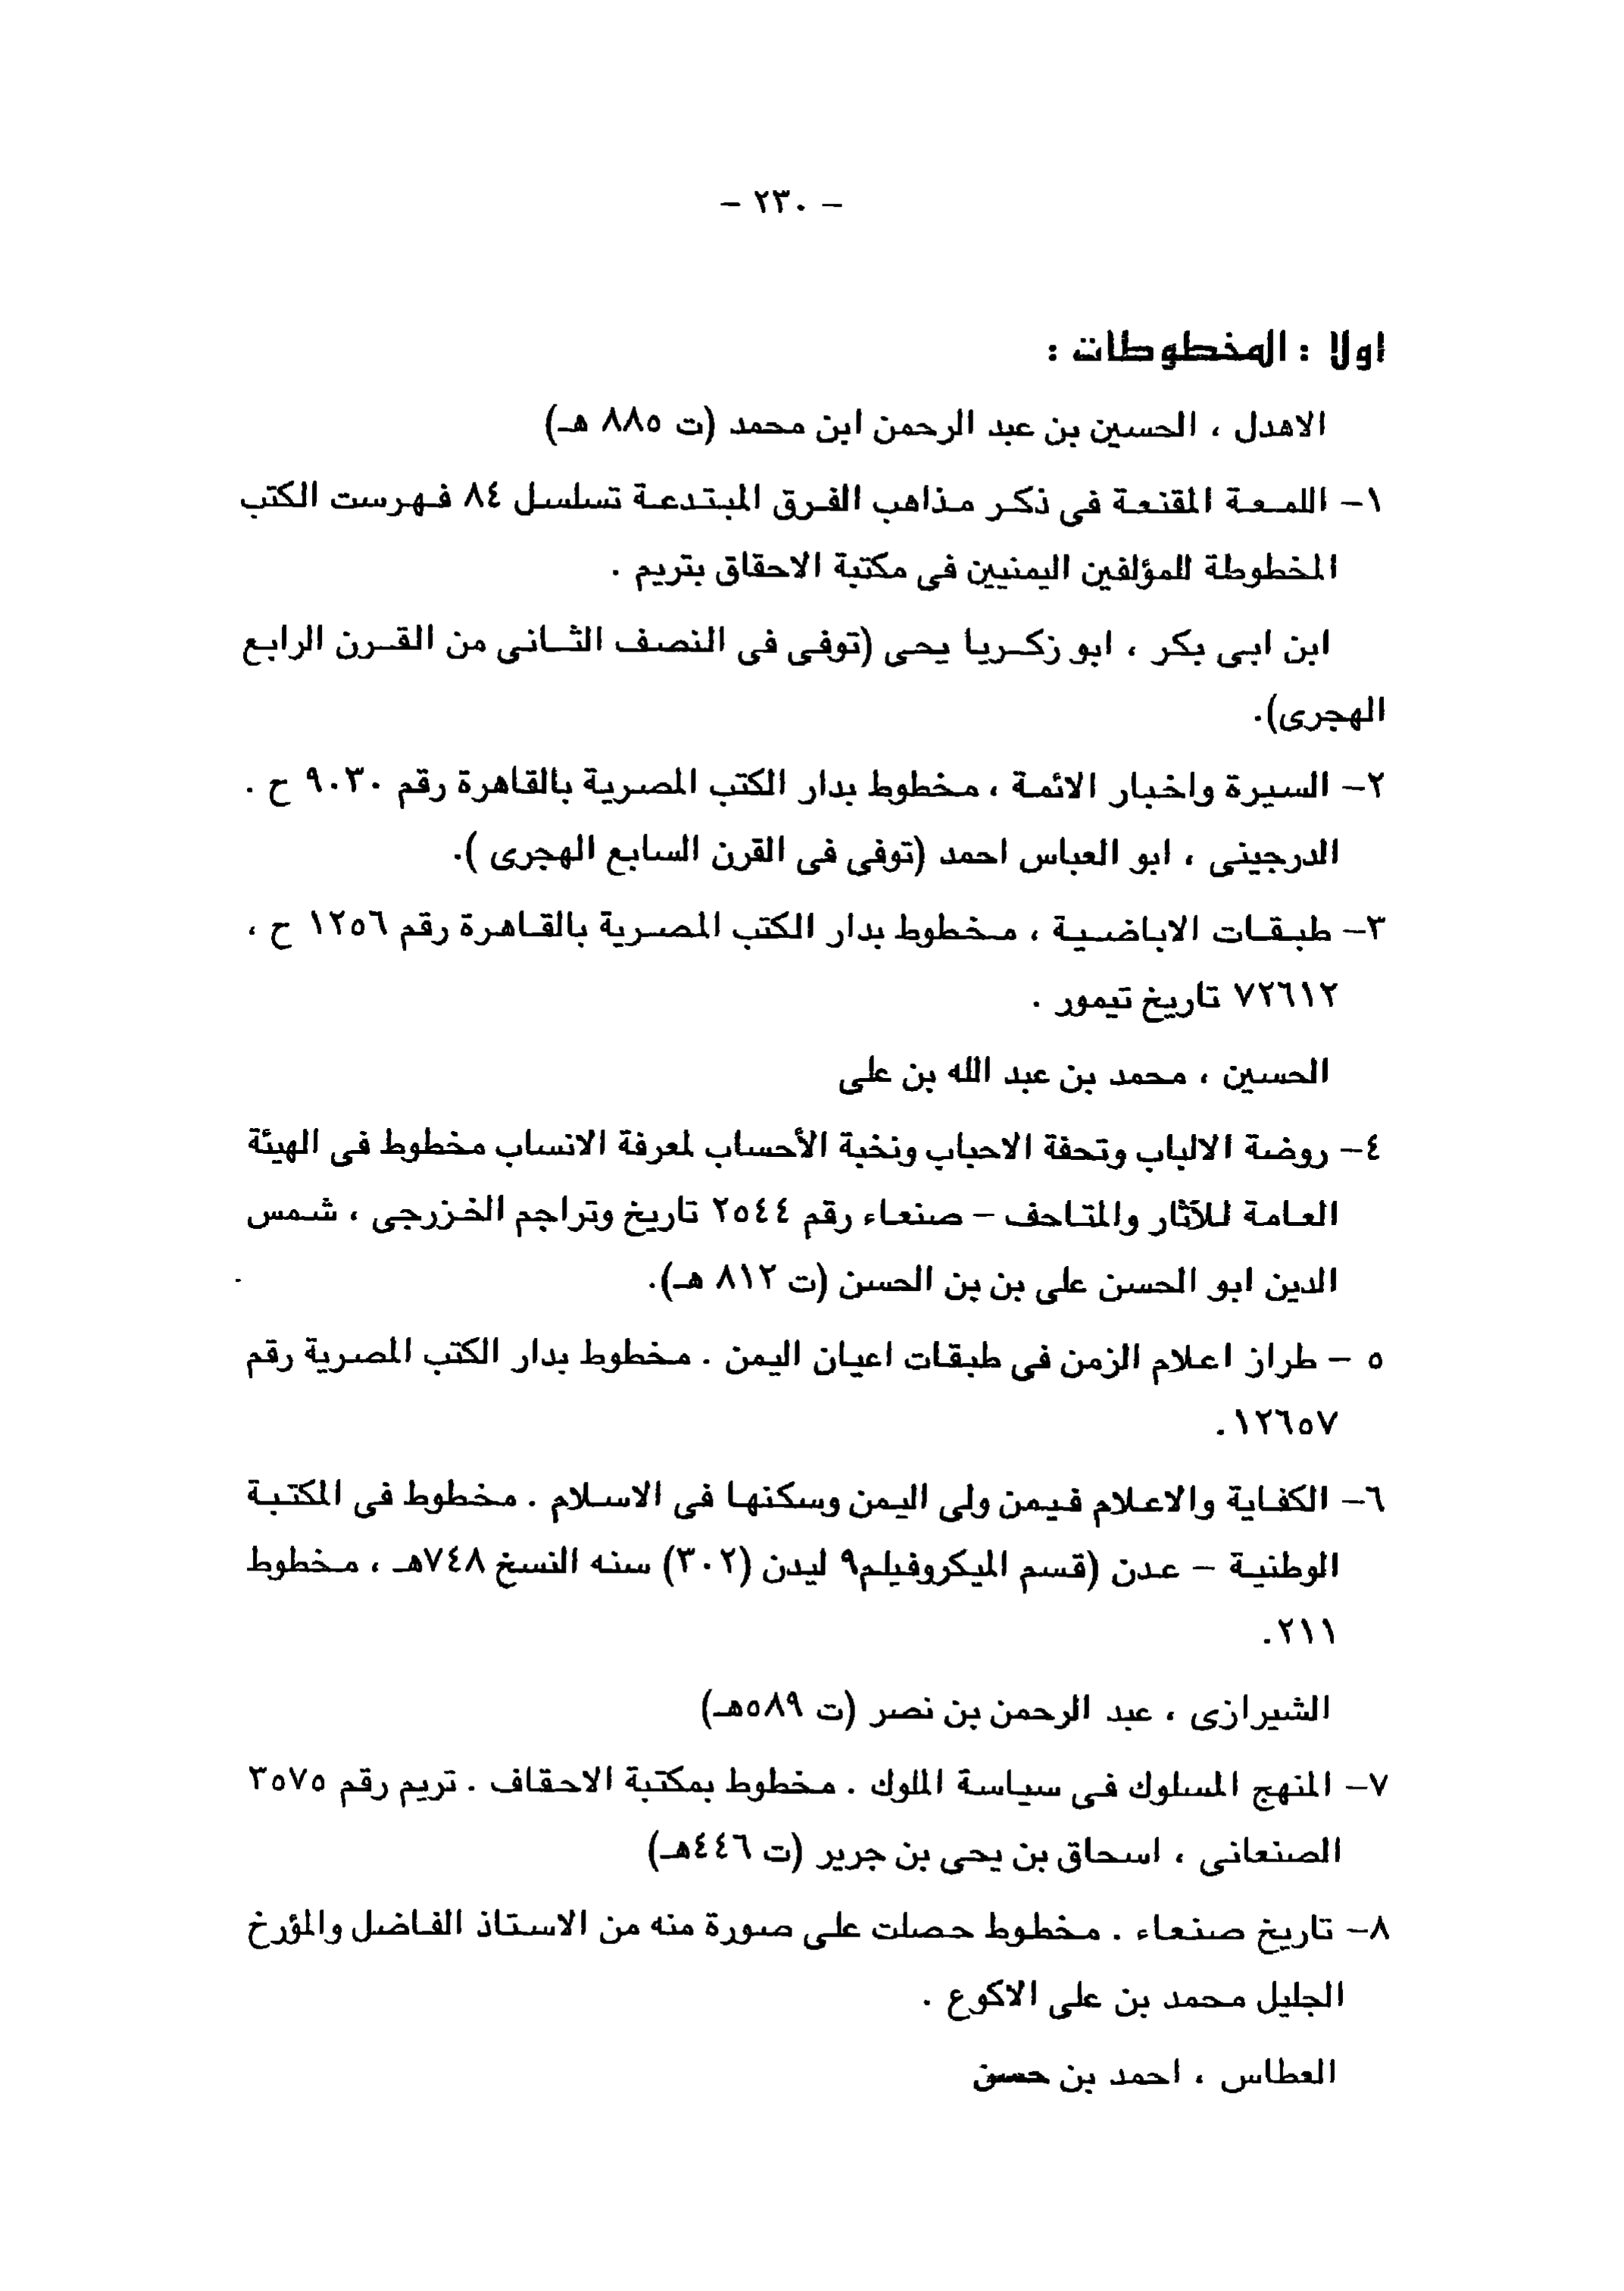 - ٢٣٠ -
اولا : المخطوطات :
الاهدل ، الحسين بن عبد الرحمن ابن محمد (ت ٨٨٥ هـ)
١- اللمعة المقنعة فى ذكر مذاهب الفرق المبتدعة تسلسل ٨٤ فهرست الكتب
المخطوطة للمؤلفين اليمنيين فى مكتبة الاحقاق بتريم .
ابن ابى بكر ، ابو زكريا يحى (توفى فى النصف الثانى من القرن الرابع
الهجرى).
٢- السيرة واخبار الائمة ، مخطوط بدار الكتب المصرية بالقاهرة رقم ٩٠٣٠ ح .
الدرجينى ، ابو العباس احمد (توفى فى القرن السابع الهجرى ).
٣- طبقات الاباضية ، مخطوط بدار الكتب المصرية بالقاهرة رقم ١٢٥٦ ح ،
٧٢٦١٢ تاريخ تيمور .
الحسين ، محمد بن عبد الله بن على
٤- روضة الالباب وتحفة الاحباب ونخبة الأحساب لمعرفة الانساب مخطوط فى الهيئة
العامة للآثار والمتاحف - صنعاء رقم ٢٥٤٤ تاريخ وتراجم الخزرجى ، شمس
الدين ابو الحسن على بن بن الحسن (ت ٨١٢ هـ).
٥ - طراز اعلام الزمن فى طبقات اعيان اليمن . مخطوط بدار الكتب المصرية رقم
١٢٦٥٧.
٦- الكفاية والاعلام فيمن ولى اليمن وسكنها فى الاسلام . مخطوط فى المكتبة
الوطنية - عدن (قسم الميكروفيلم٩ ليدن (٣٠٢) سنه النسخ ٧٤٨هـ ، مخطوط
٢١١.
الشيرازى ، عبد الرحمن بن نصر (ت ٥٨٩هـ)
٧- المنهج المسلوك فى سياسة الملوك . مخطوط بمكتبة الاحقاف . تريم رقم ٣٥٧٥
الصنعانى ، اسحاق بن يحى بن جرير (ت ٤٤٦هـ)
٨- تاريخ صنعاء . مخطوط حصلت على صورة منه من الاستاذ الفاضل والمؤرخ
الجليل محمد بن على الاكوع .
العطاس ، احمد بن حسن